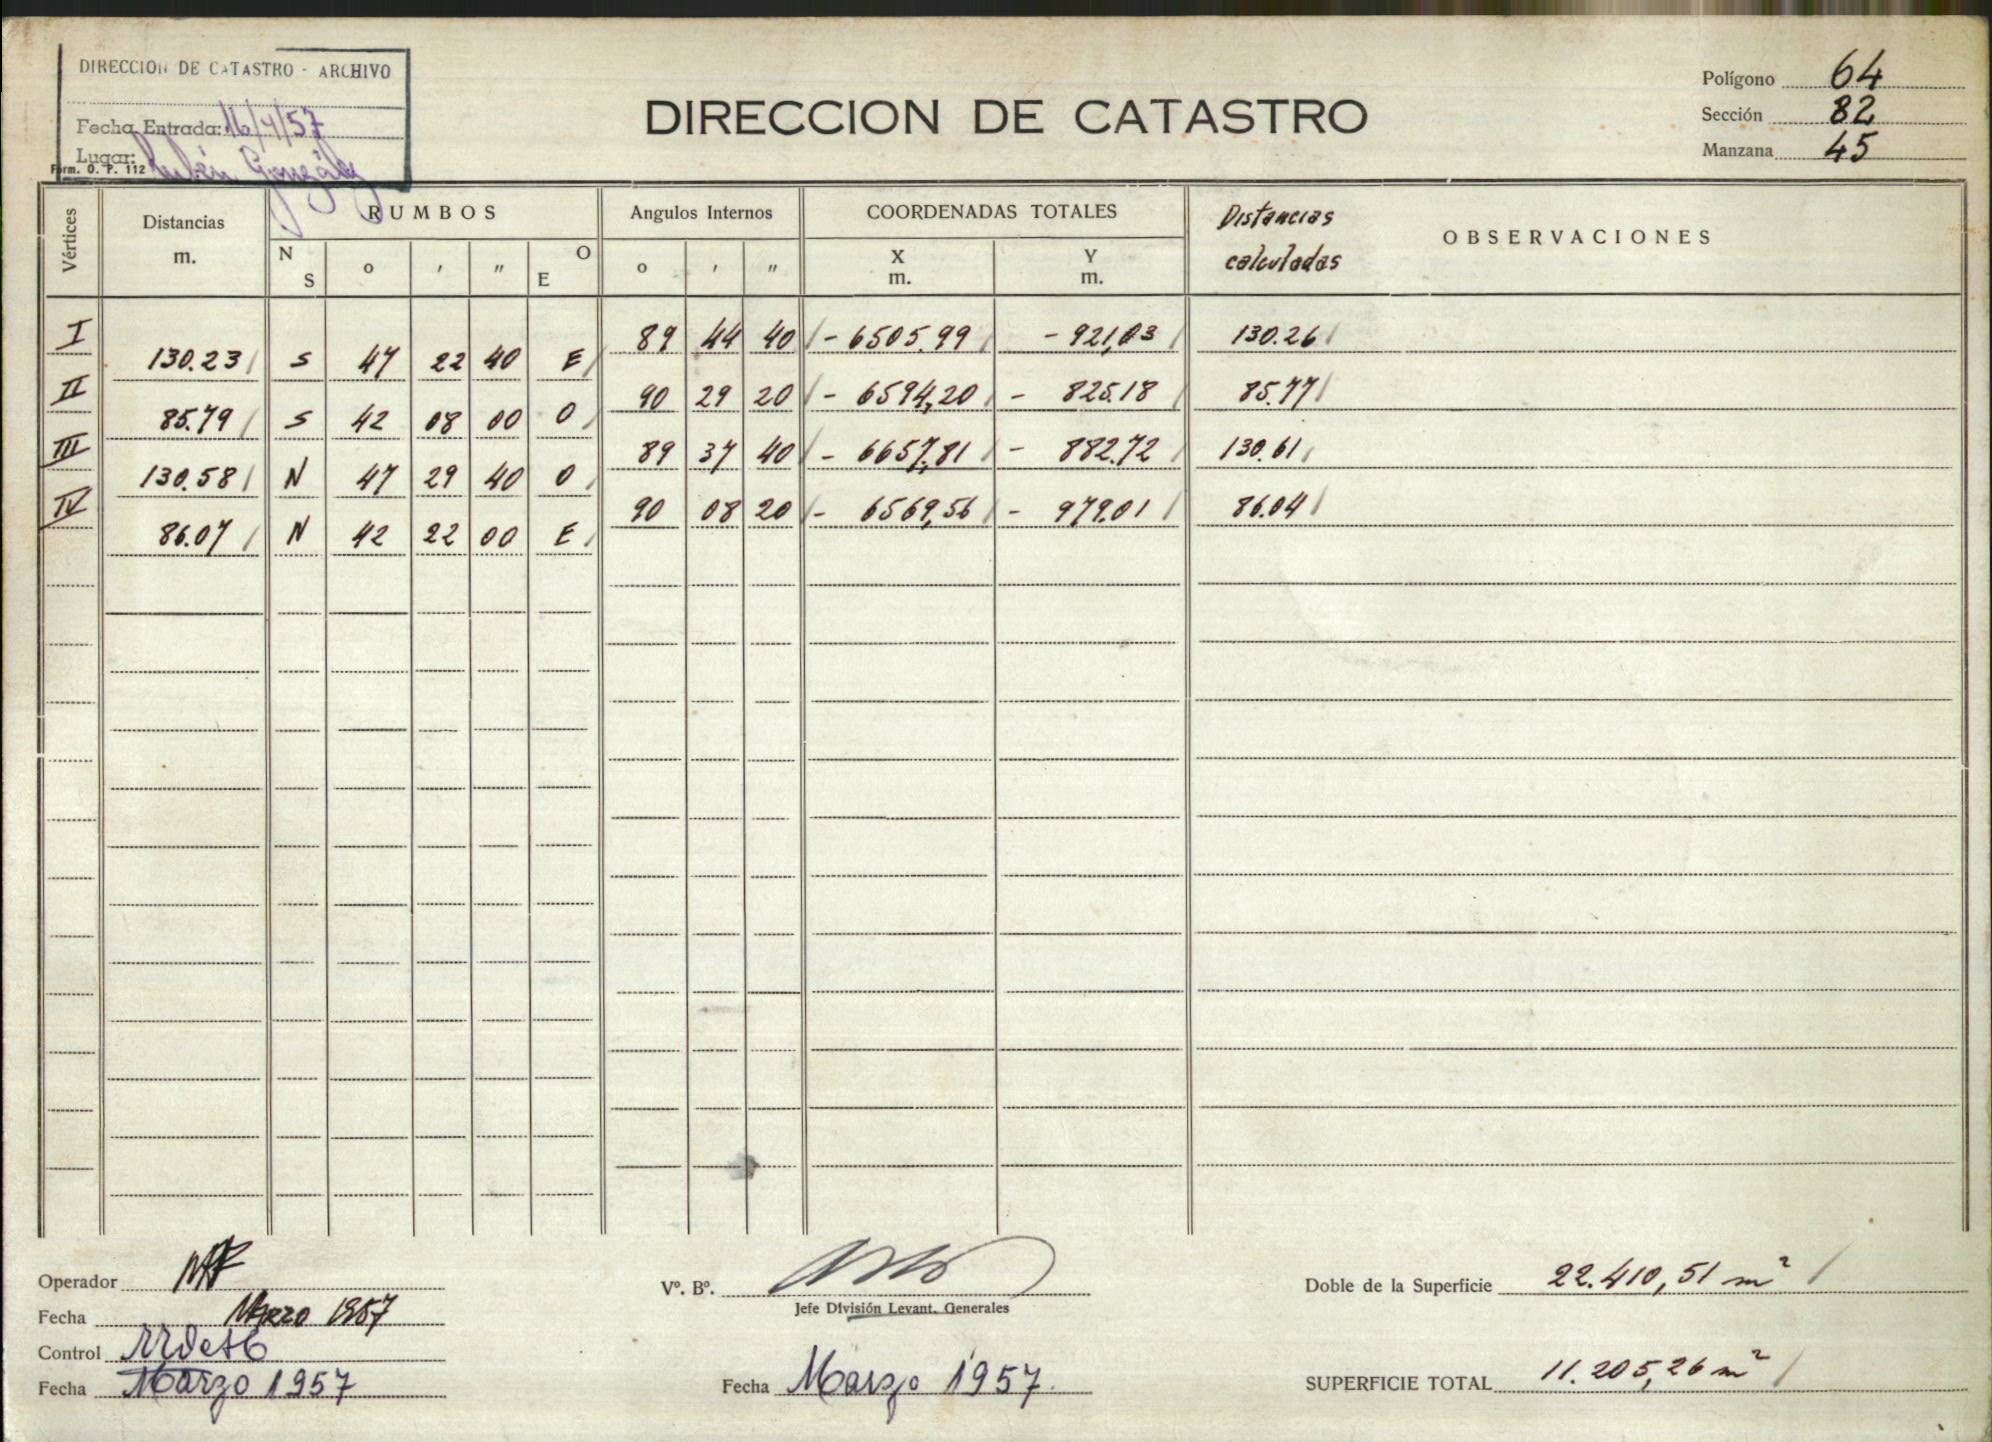 DIRECCION DE CATASTRO - ARCHIVO
Fecha Entrada: 16/4/57
Lugar: Rubén González
Form. O. P. 112
DIRECCION DE CATASTRO
Polígono 64
Sección 82
Manzana 45
Vértices Distancias m. RUMBOS Angulos Internos COORDENADAS TOTALES Distancias calculadas OBSERVACIONES
N S o ' " O E o ' " X m. Y m.
I 89 44 40 - 6505.99 - 921,03 130.26
130.23 S 47 22 40 E
II 90 29 20 - 6594,20 - 825.18 85.77
85.79 S 42 08 00 O
III 89 37 40 - 6657,81 - 882.72 130.61
130.58 N 47 29 40 O
IV 90 08 20 - 6569,56 - 979.01 86.04
86.07 N 42 22 00 E
Operador
Fecha Marzo 1957
Control
Fecha Marzo 1957
Vº. Bº.
Jefe División Levant. Generales
Fecha Marzo 1957.
Doble de la Superficie 22.410,51 m²
SUPERFICIE TOTAL 11.205,26 m²